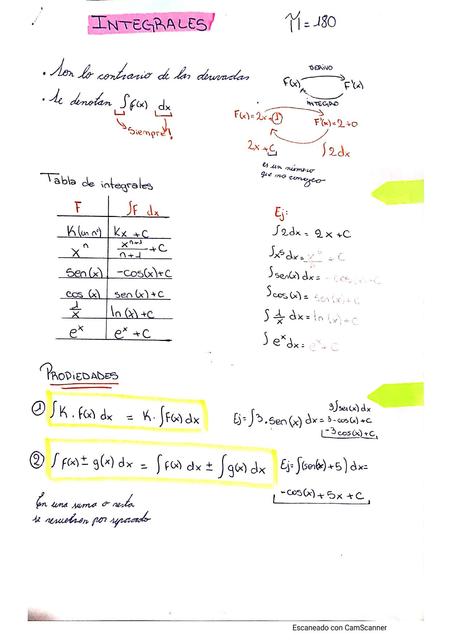 INTEGRALES
π = 180
• Son lo contrario de las derivadas
• Se denotan ∫f(x) dx
Siempre!
DERIVO
F(x) F'(x)
INTEGRO
F(x)=2x+1 F'(x)=2+0
2x+C ∫2dx
es un número
que no conozco
Tabla de integrales
F ∫F dx
K(un nº) Kx + C
xⁿ xⁿ⁺¹/n+1 + C
sen(x) -cos(x)+C
cos(x) sen(x)+C
1/x ln(x)+C
eˣ eˣ + C
Ej:
∫2dx = 2x+C
∫x⁵dx = x⁶/6 + C
∫sen(x)dx = -cos(x)+C
∫cos(x) = sen(x)+C
∫1/x dx = ln(x)+C
∫eˣdx = eˣ+C
PROPIEDADES
① ∫K·f(x)dx = K·∫f(x)dx
Ej=∫3·sen(x)dx=
3∫sen(x)dx
3·-cos(x)+C
-3cos(x)+C
② ∫f(x)±g(x)dx = ∫f(x)dx ± ∫g(x)dx
Ej=∫(sen(x)+5)dx=
-cos(x)+5x+C
En una suma o resta
se resuelven por separado
Escaneado con CamScanner